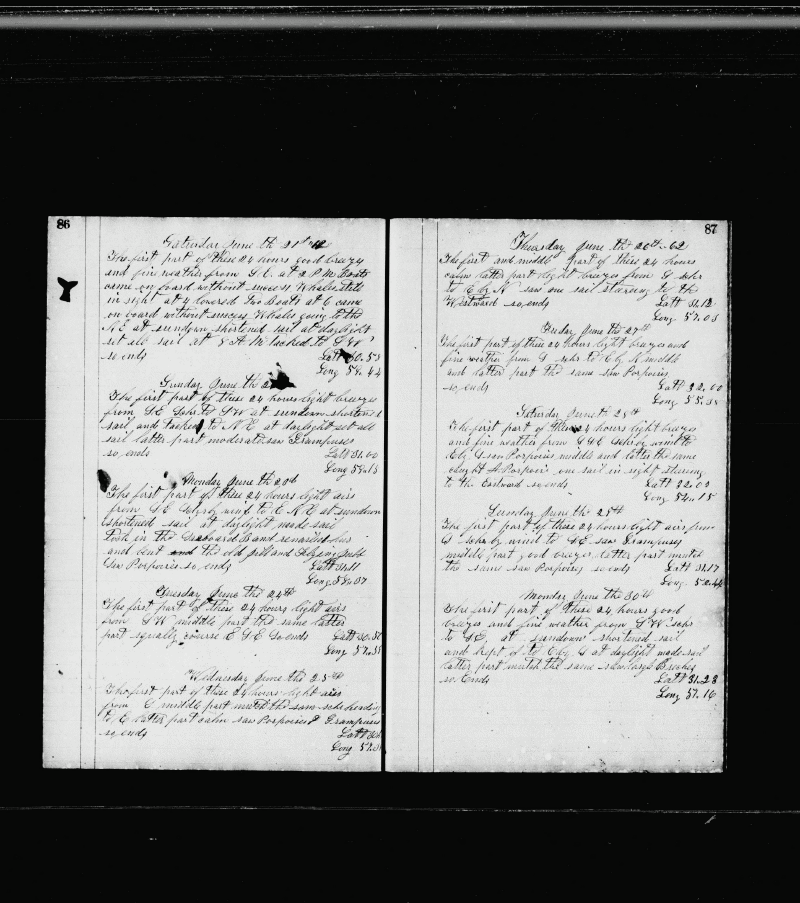 86
Saturday June th 21st 62
The first part of these 24 hours good breezes
and fine weather from S.E. at 2 P.M. Boats
came on board without success Whales still
in sight at 4 lowered two Boats at 6 came
on board without success Whales going to the
NE at sundown shortened sail at daylight
set all sail at 8 A M tacked to S W
so ends Latt 30.53
Long 58.44
Sunday June th
The first part of these 24 hours light breezes
from SE to SW at sundown shortened
sail and tacked to NE at daylight set all
sail latter part moderate saw Grampuses
so ends Latt 31.00
Long 58.13
Monday June th
The first part of these 24 hours light airs
from SE wind to E N E at sundown
shortened sail at daylight made sail
took in the and
and bent the old jibb and flying jibb
Saw Porpoises so ends Latt 31.11
Long 58.37
Tuesday June the 24th
The first part of these 24 hours light airs
from S W middle part the same latter
part squally course E S E So ends Latt 30.
Long 57.
Wednesday June the 25th
The first part of these 24 hours light airs
from S middle part much the same heading
to E latter part calm saw Porpoises & Grampuses
so ends Latt
Long 57.
87
Thursday June th 26th 62
The first and middle part of these 24 hours
calm latter part light breezes from S
to E by N saw one sail steering to the
Westward so ends Latt 31.12
Long 57.03
Friday June th 27th
The first part of these 24 hours light breezes and
fine weather from S to E by N middle
and latter part the same saw Porpoises
so ends Latt 32.00
Long 55.
Saturday June th 28th
The first part of these 24 hours light breezes
and fine weather from wind to
E by S saw Porpoises middle and latter the same
caught A Porpois one sail in sight steering
to the Eastward so ends Latt 32.03
Long 54.15
Sunday June 25th
The first part of these 24 hours light airs from
S by wind to SE saw Grampuses
middle part good breezes latter part much
the same saw Porpoises so ends Latt 31.17
Long 52.
Monday June the 30th
The first part of these 24 hours good
breezes and fine weather from S W
to SE, at sundown shortened sail
and kept of to E by S at daylight made sail
latter part much the same saw large Breaches
so Ends Latt 31.28
Long 51.16